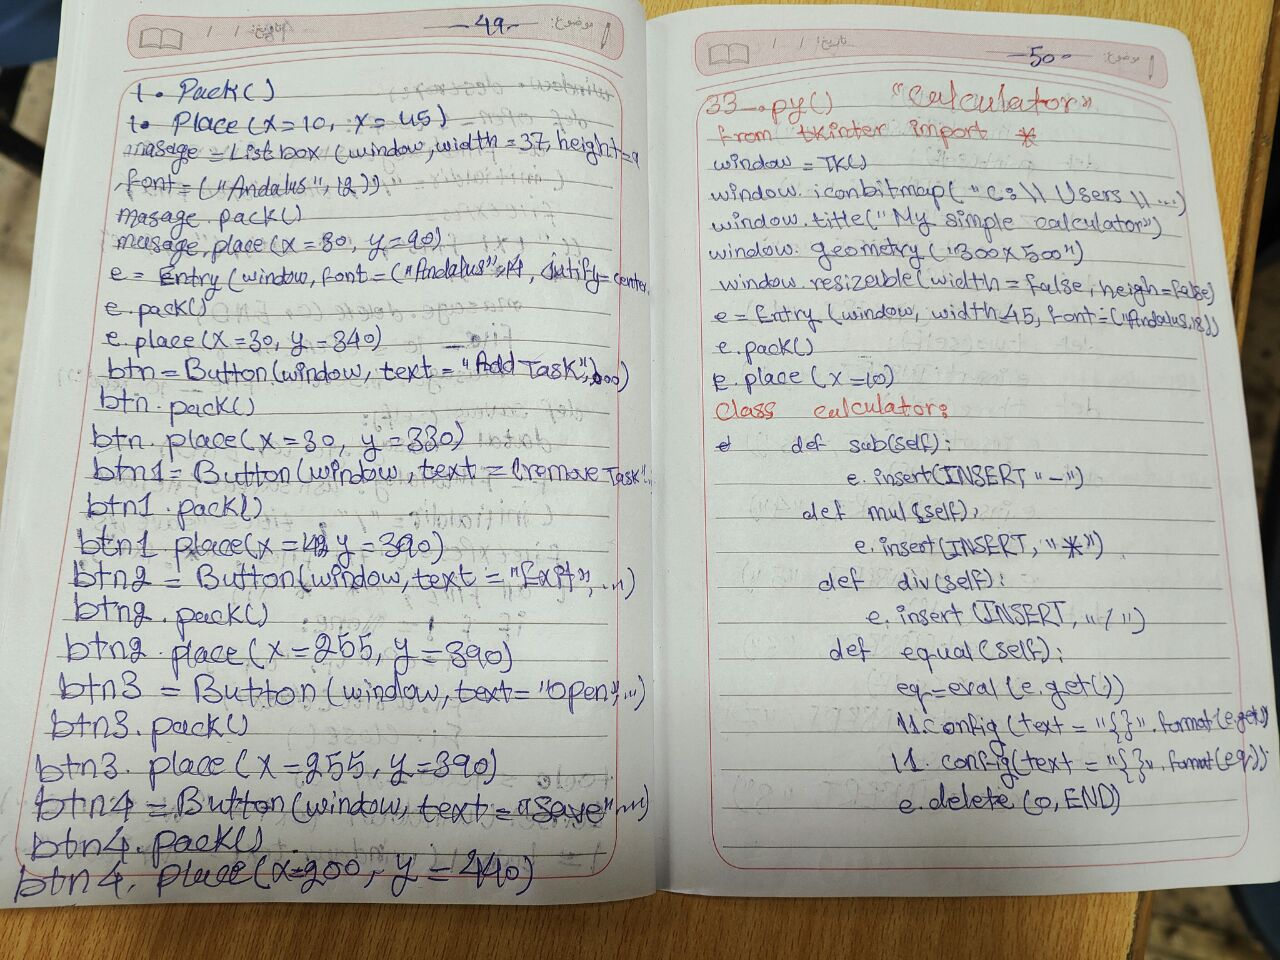 موضوع:
-49-
تاریخ: / /
t. Pack()
t. Place(x=10, x=45)
masage=Listbox (window,width=37,height=9
font=("Andalus",12))
masage.pack()
masage.place(x=30, y=90)
e= Entry(window, font=("Andalus",14, Justify=center,
e.pack()
e.place(x=30, y=340)
btn=Button(window, text="Add Task",...)
btn.pack()
btn.place(x=30, y=330)
btn1=Button(window, text="remove Task"..
btn1.pack()
btn1 place(x= y=390)
btn2 = Button(window, text="Exit",...)
btn2.pack()
btn2.place(x=255, y=390)
btn3 = Button(window, text="open",..)
btn3.pack()
btn3. place(x=255, y=390)
btn4=Button(window, text="save"...)
btn4.pack()
btn4. place(x=200, y=440)
موضوع:
-50-
تاریخ: / /
33-.py() "calculator"
from tkinter import *
window=TK()
window.iconbitmap("C:\\Users\\...)
window.title("My simple calculator")
window.geometry("300x500")
window.resizeable(width=false, heigh=false)
e=Entry(window, width=45, font=("Andalus,18))
e.pack()
e.place(x=10)
class calculator:
def sub(self):
e.insert(INSERT "-")
def mul(self):
e.insert(INSERT, "*")
def div(self):
e.insert(INSERT, "/")
def equal(self):
eq=eval(e.get())
l1.config(text="{}".format(e.get)
l1.config(text="{}".format(eq))
e.delete(0,END)